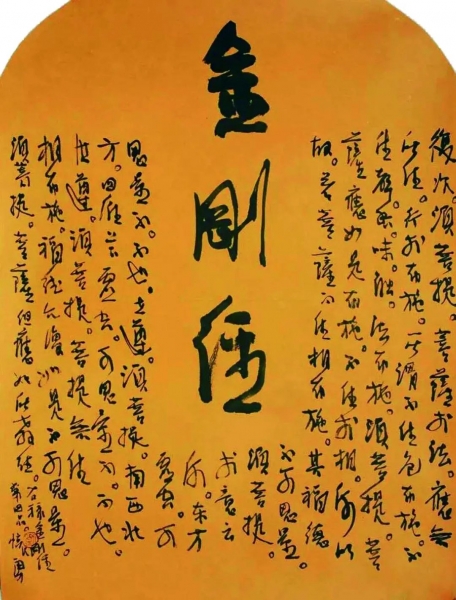 金剛經
復次。須菩提。菩薩於法。應無
所住。行於布施。所謂不住色布施。不
住聲。香。味。觸。法布施。須菩提。菩
薩應如是布施。不住於相。何以
故。若菩薩不住相布施。其福德
不可思量。
須菩提。
於意云
何。东方
虛空。可
思量不。不也。世尊。須菩提。南西北
方。四維上下虛空。可思量不。不也。
世尊。須菩提。菩提無住
相布施。福德亦復如是不可思量。
須菩提。菩薩但應如所教住。右錄金剛經
第四品